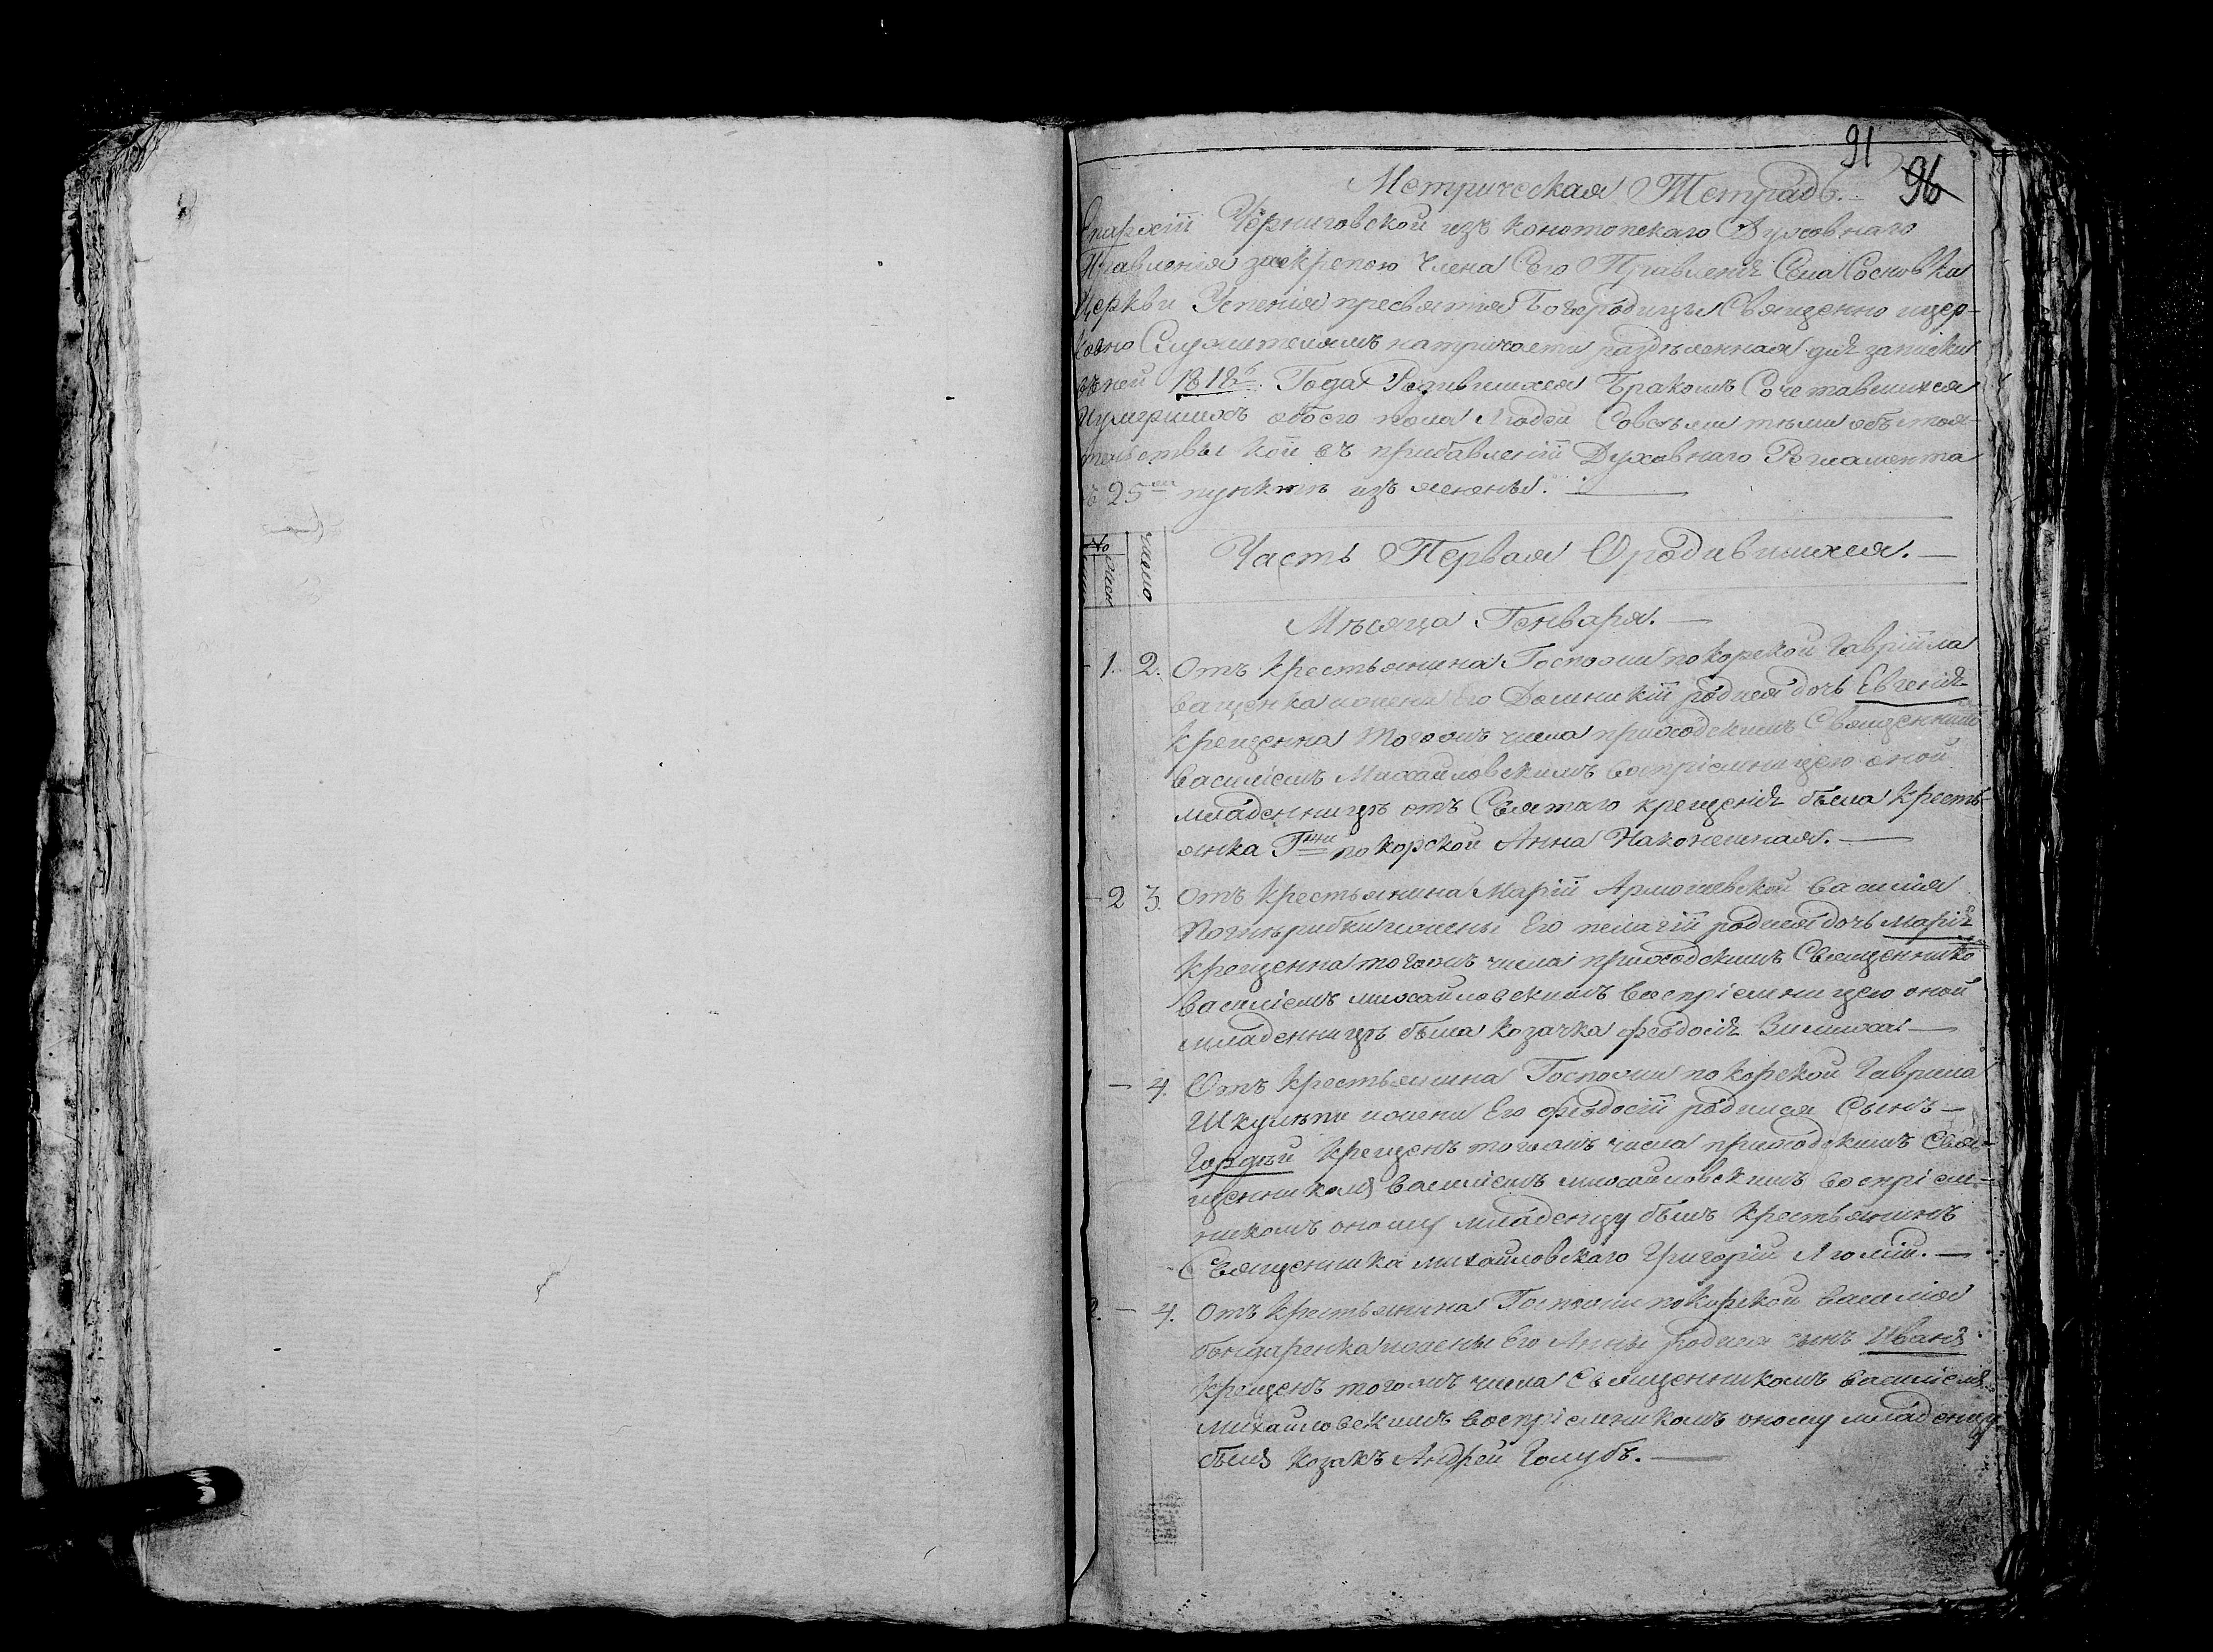 91
96
Метрическая Тетрадь.
Епархіи Черниговской изъ конотопскаго Духовнаго
Правленія заскрепою Члена Сего Правленія Села Сосновки
Церкви Успенія пресвятія Богородицы Священно ицер-
ковно Служителямъ натричасти раздѣленная для записки
въ ней 1818 Года Родившихся Бракомъ Сочетавшихся
Иумершихъ обоего пола Людей Совсѣми тѣми обстоя-
тельствы кои въ прибавленіи Духовнаго Регламента
въ 25 пунктѣ изъ яснены.
число
Часть Первая Ородившихся.
Мѣсяца Генваря.
1. 2. Отъ крестьянина Госпожи покорской Гавріила
ващенка ижени Его Домникіи родися дочь Евгенія
крещенна тогожъ числа приходскимъ Священникомъ
василіемъ Михайловскимъ воспріемницею оной
младенницѣ отъ Святаго крещенія была кресть-
янка Гжи покорской Анна Наконешная.
2 3. Отъ крестьянина Маріи Армошевской василія
ижены Его пелагіи родися дочь Марія
крещенна тогожъ числа приходскимъ Священнико
василіемъ михайловскимъ воспріемницею оной
младенницѣ была козачка феодосія
4. Отъ крестьянина Госпожи покорской Гаврила
ижени Его феодосіи родился Сынъ
Гордѣй крещенъ тогожъ числа приходскимъ Свя-
щенникомъ василіемъ михайловскимъ воспріем-
никомъ оному младенцу былъ крестьянинъ
Священника михайловскаго Григорій
4. Отъ крестьянина Госпожи покорской василія
бондаренка ижены Его Анны родися сынъ Иванъ
крещенъ тогожъ числа Священникомъ василіемъ
михайловскимъ воспріемникомъ оному младенцу
былъ козакъ Андрей Голубъ.